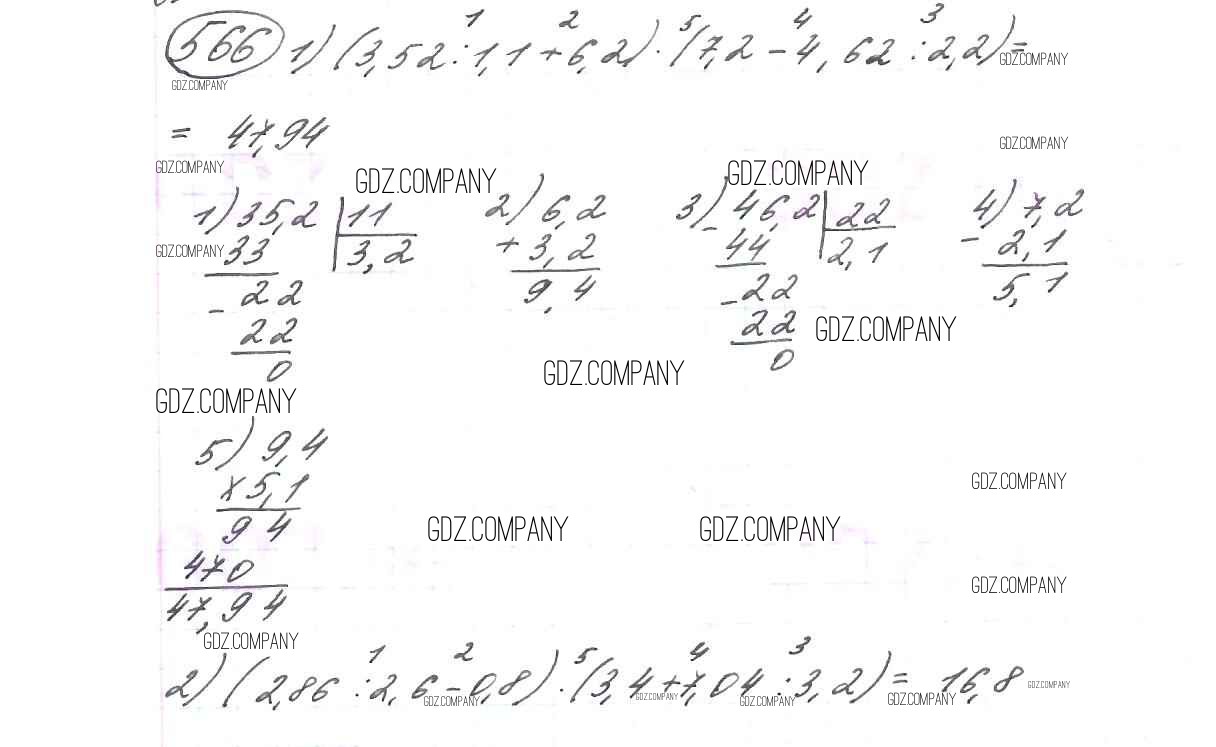 566 1) (3,52 : 1,1 + 6,2) · (7,2 - 4,62 : 2,2) =
1 2 5 4 3
GDZ.COMPANY
GDZ.COMPANY
= 47,94
GDZ.COMPANY
GDZ.COMPANY
GDZ.COMPANY GDZ.COMPANY
1) 35,2 | 11 2) 6,2 3) - 46,2 | 22 4) 7,2
GDZ.COMPANY 33 3,2 + 3,2 44 2,1 - 2,1
- 22 9,4 - 22 5,1
22 22 GDZ.COMPANY
0 0
GDZ.COMPANY
GDZ.COMPANY
5) 9,4
x 5,1 GDZ.COMPANY
94 GDZ.COMPANY GDZ.COMPANY
470 GDZ.COMPANY
47,94
GDZ.COMPANY
1 2 5 4 3
2) (2,86 : 2,6 - 0,8) · (3,4 + 7,04 : 3,2) = 16,8
GDZ.COMPANY GDZ.COMPANY GDZ.COMPANY GDZ.COMPANY GDZ.COMPANY